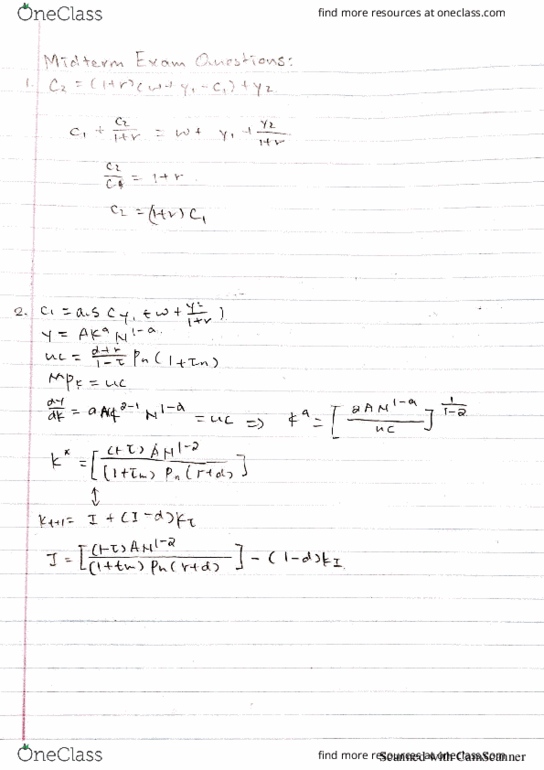 OneClass
find more resources at oneclass.com
Midterm Exam Questions:
1. C2 = (1+r)(w+y1-C1)+y2
C1 + C2/1+r = w+ y1 + y2/1+r
C2/C1 = 1+r
C2 = (1+r) C1
2. C1 = 0.5 (y1 + w + y2/1+r)
Y = AK^a N^1-a
uc = d+r/1-τ Pn (1+τn)
MPk = uc
dy/dk = aAk^a-1 N^1-a = uc => k^a = [aAN^1-a/uc]^1/1-a
k* = [(1-τ)AN^1-a/(1+τn) Pn (r+d)]
↕
Kt+1 = I + (1-d)Kt
I = [(1-τ)AN^1-a/(1+τn) Pn(r+d)] - (1-d)kI
OneClass
find more resources at oneclass.com
Scanned with CamScanner